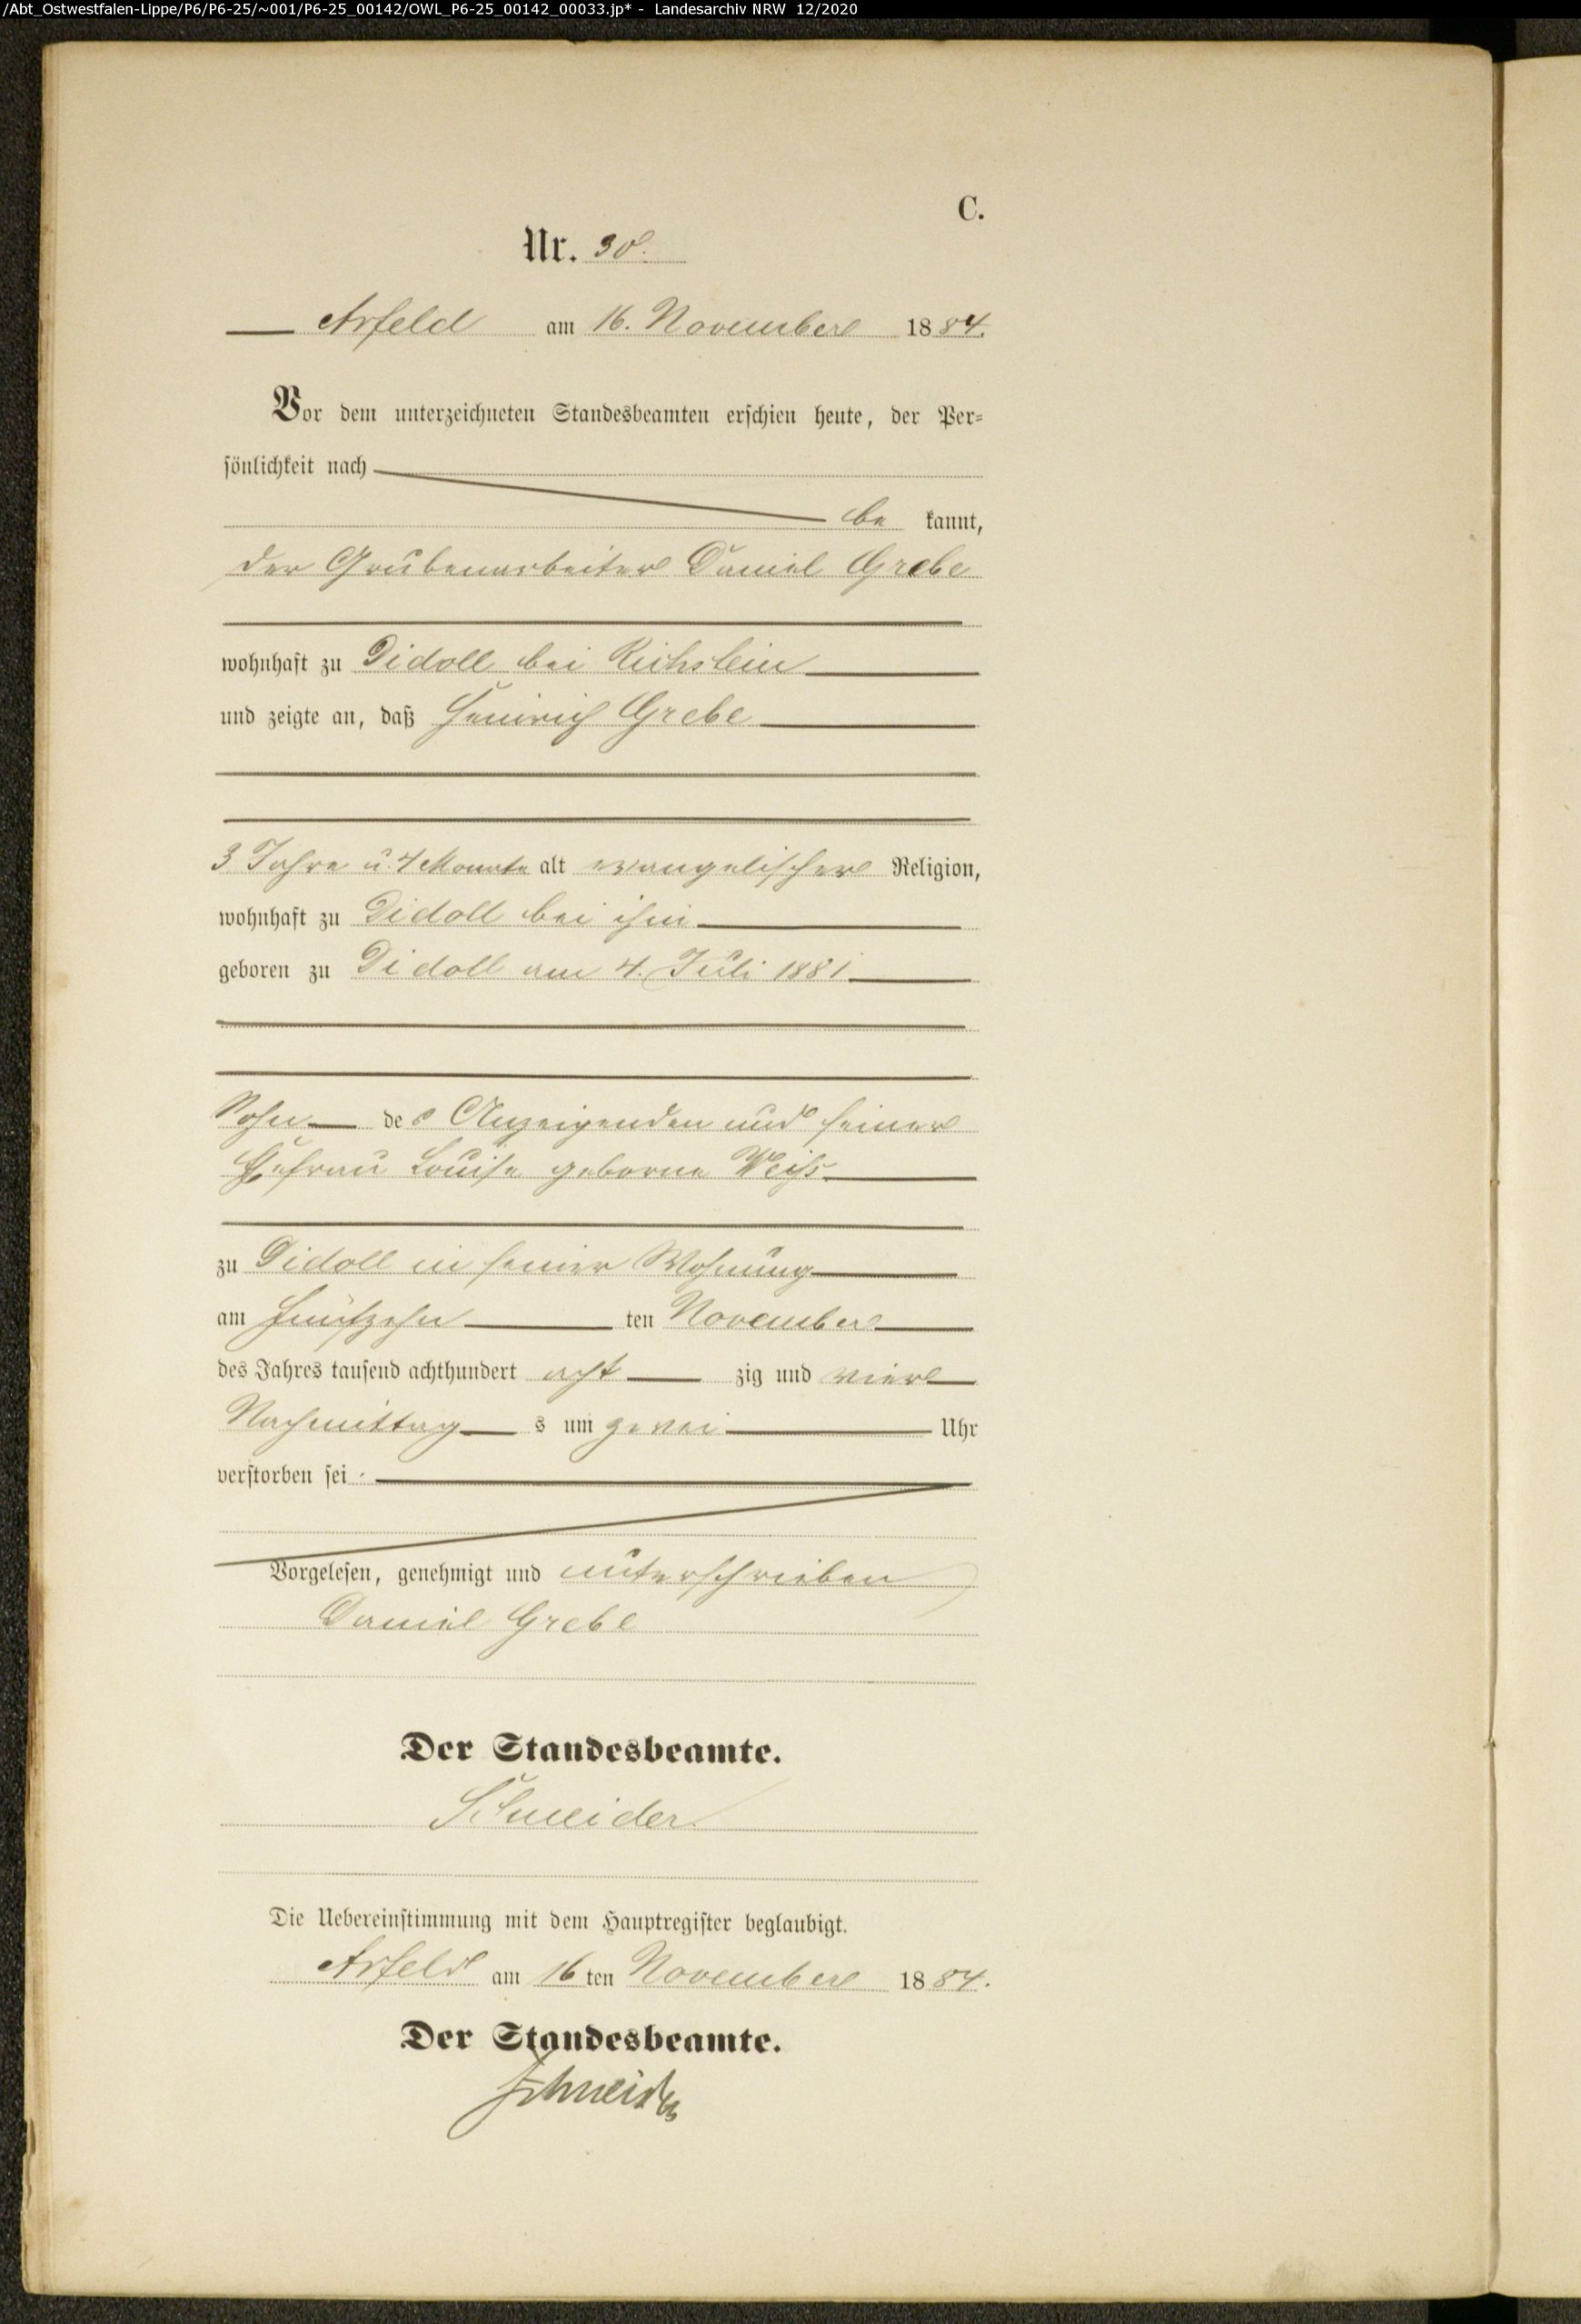 /Abt_Ostwestfalen-Lippe/P6/P6-25/~001/P6-25_00142/OWL_P6-25_00142_00033.jp* - Landesarchiv NRW 12/2020
C.
Nr. 30.
Arfeld am 16. November 1884.
Vor dem unterzeichneten Standesbeamten erschien heute, der Per-
sönlichkeit nach
be kannt,
der Grubenarbeiter Daniel Grebe
wohnhaft zu Didoll bei Richstein
und zeigte an, daß Heinrich Grebe
3 Jahre u. 4 Monate alt evangelischer Religion,
wohnhaft zu Didoll bei ihm
geboren zu Didoll am 4. Juli 1881
Sohn des Anzeigenden und seiner
Ehefrau Louise geborne Weiß
zu Didoll in seiner Wohnung
am fünfzehn ten November
des Jahres tausend achthundert acht zig und vier
Nachmittag s um zwei Uhr
verstorben sei
Vorgelesen, genehmigt und unterschrieben
Daniel Grebe
Der Standesbeamte.
Schneider
Die Uebereinstimmung mit dem Hauptregister beglaubigt.
Arfeld am 16 ten November 1884.
Der Standesbeamte.
Schneider